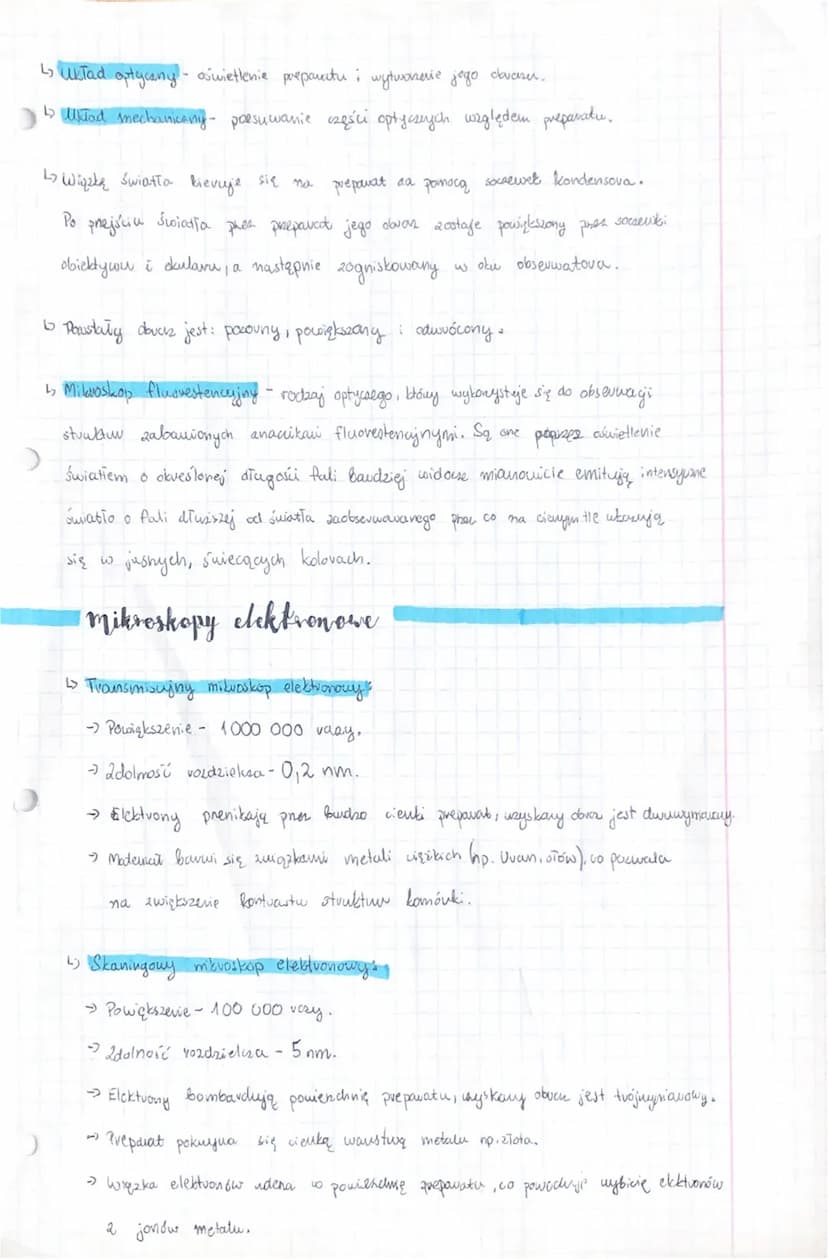 ↳ Układ optyczny - oświetlenie preparatu i wytworzenie jego obrazu.
↳ Układ mechaniczny - przesuwanie części optycznych względem preparatu.
↳ Wiązkę światła kieruje się na preparat za pomocą soczewek kondensora.
Po przejściu światła przez preparat jego obraz zostaje powiększony przez soczewki
obiektywu i okularu, a następnie zogniskowany w oku obserwatora.
↳ Powstały obraz jest: pozorny, powiększony i odwrócony.
↳ Mikroskop fluorestencyjny - rodzaj optycznego, który wykorzystuje się do obserwacji
struktur zabarwionych znacznikami fluorestencyjnymi. Są one poprzez oświetlenie
światłem o określonej długości fali bardziej widocze mianowicie emitują intensywne
światło o fali dłuższej od światła zaobserwowanego przez co na ciemym tle ukazują
się w jasnych, świecących kolorach.
mikroskopy elektronowe
↳ Transmisyjny mikroskop elektronowy:
→ Powiększenie - 1 000 000 razy.
→ Zdolność rozdzielcza - 0,2 nm.
→ Elektrony przenikają przez bardzo cienki preparat, uzyskany obraz jest dwuwymiarowy.
→ Materiał barwi się związkami metali ciężkich (np. Uran, ołów), co pozwala
na zwiększenie kontrastu struktur komórki.
↳ Skaningowy mikroskop elektronowy:
→ Powiększenie - 100 000 razy.
→ Zdolność rozdzielcza - 5 nm.
→ Elektrony bombardują powierzchnię preparatu, uzyskany obraz jest trójwymiarowy.
→ Preparat pokrywa się cienką warstwą metalu np. złota.
→ Wiązka elektronów uderza w powierzchnię preparatu, co powoduje wybicie elektronów
z jonów metalu.